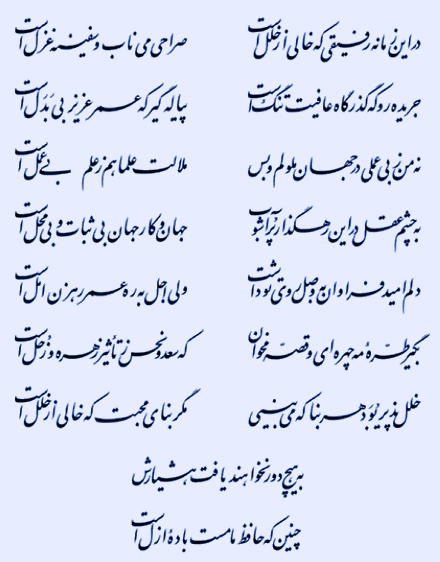 درین زمانه رفیقی که خالی از خلل است صراحی می ناب و سفینه غزل است
جریده رو که گذرگاه عافیت تنگ است پیاله گیر که عمر عزیز بی بدل است
نه من ز بی عملی در جهان ملولم و بس ملالت علما هم ز علم بی عمل است
به چشم عقل درین رهگذار پرآشوب جهان و کار جهان بی ثبات و بی محل است
دلم امید فراوان به وصل روی تو داشت ولی اجل به ره عمر رهزن امل است
بگیر طره مه چهره ای و قصه مخوان که سعد و نحس ز تأثیر زهره و زحل است
خلل پذیر بود هر بنا که می بینی مگر بنای محبت که خالی از خلل است
به هیچ دور نخواهند یافت هشیارش
چنین که حافظ ما مست باده ازل است